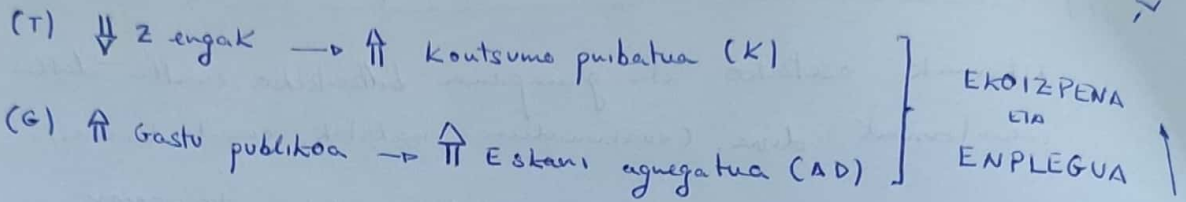 (T) ⇓ Zergak → ⇑ Kontsumo pribatua (K)
(G) ⇑ Gastu publikoa → ⇑ Eskari agregatua (AD)
EKOIZPENA
ETA
ENPLEGUA ↑